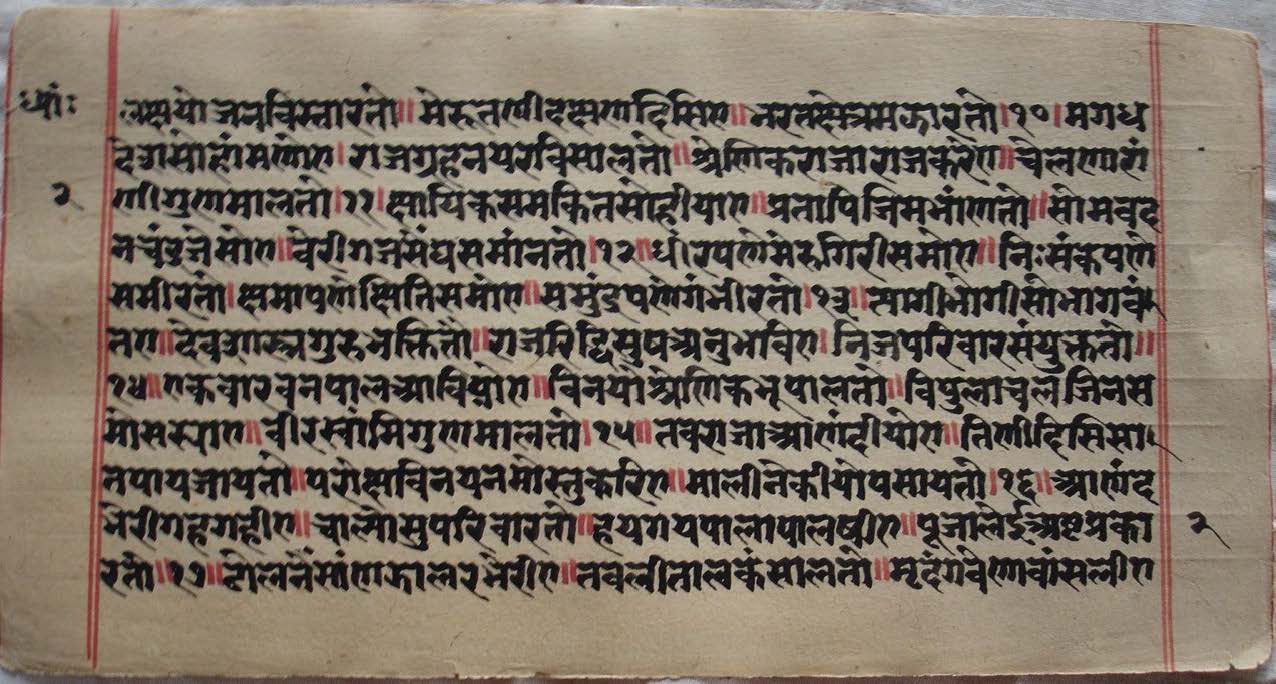 लक्षयोजनविस्तारतो॥ मेरूतणीदक्षणदिसिए॥ भरतक्षेत्रमझारतो।१०।मगध
देशसोहांमणोए।राजग्रहनयरविसालतो॥श्रेणिकराजाराजकरेए॥चेलणारां
२
णीगुणमालतो।११।क्षायिकसमकितसोहीयाए॥प्रतापिजिमभांणतो॥सोमवद
नचंद्रजेसोए॥वेरीगजसंघसमांनतो।१२॥धीरपणेमेरुगिरीसमोए॥निःसंकपणे
समीरतो।क्षमापणेक्षितिसमोए॥समुंद्रपणेगंभीरतो।१३॥त्यागीभोगीसोभागवं
तए॥देवशास्त्रगुरुभक्तितो॥राजरिद्धिसुषअनुभविए।निजपरिवारसंयुक्ततो॥
१४॥एकवारवनपालआविषोए॥विनयोश्रेणिकभूपालतो॥विपुलाचलजिनस
मोसस्याए॥वीरस्वांमिगुणमालतो।१५॥तवराजाआणंदीयोए॥तिणीदिसिसा
तपायजायतो॥परोक्षविनयनमोस्तुकरिए॥मालीनेकीयोपसायतो।१६॥आणंद
भेरीगहगहीए॥चाल्योसुपरिवारतो॥हयगयपालापालषीए॥पूजालेईअष्टप्रका
२
रतो॥१७॥ढोलनेसांणझालरभेरीए॥तवलीतालकंसालतो॥मृदंगवेणवांसलीए